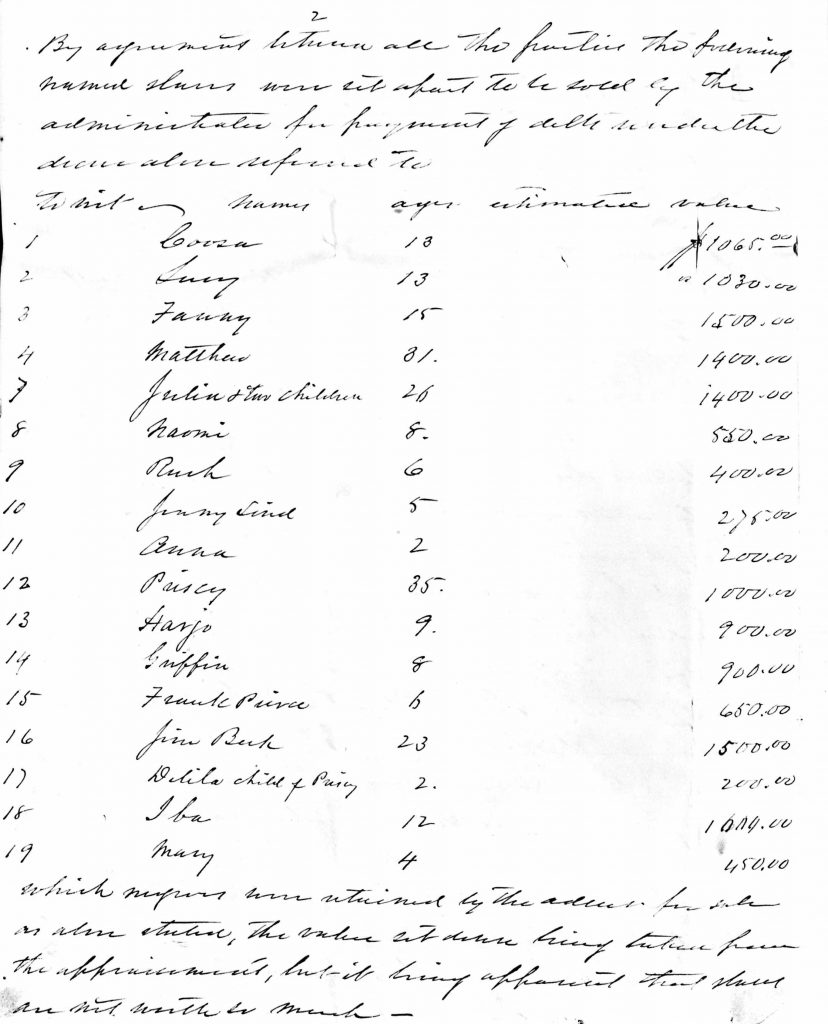 2
By agreement between all the parties the following
named slaves were set apart to be sold by the
administrator for payment of debts under the
decree above referred to
to wit names ages estimated value
1 Coosa 13 $1065.00
2 Lucy 13 " 1030.00
3 Fanny 15 1500.00
4 Matthew 31. 1400.00
7 Julia & two children 26 1400.00
8 Naomi 8. 550.00
9 6 400.00
10 Jenny Lind 5 275.00
11 Anna 2 200.00
12 Priscy 35. 1000.00
13 Harjo 9. 900.00
14 Griffin 8 900.00
15 Frank Pierce 6 650.00
16 Jim 23 1500.00
17 Delila child of Priscy 2. 200.00
18 Iba 12
19 Mary 4 450.00
which negroes were retained by the for sale
as above stated, the value set down being taken from
the appraisement, but it being apparent that slaves
are not worth so much —